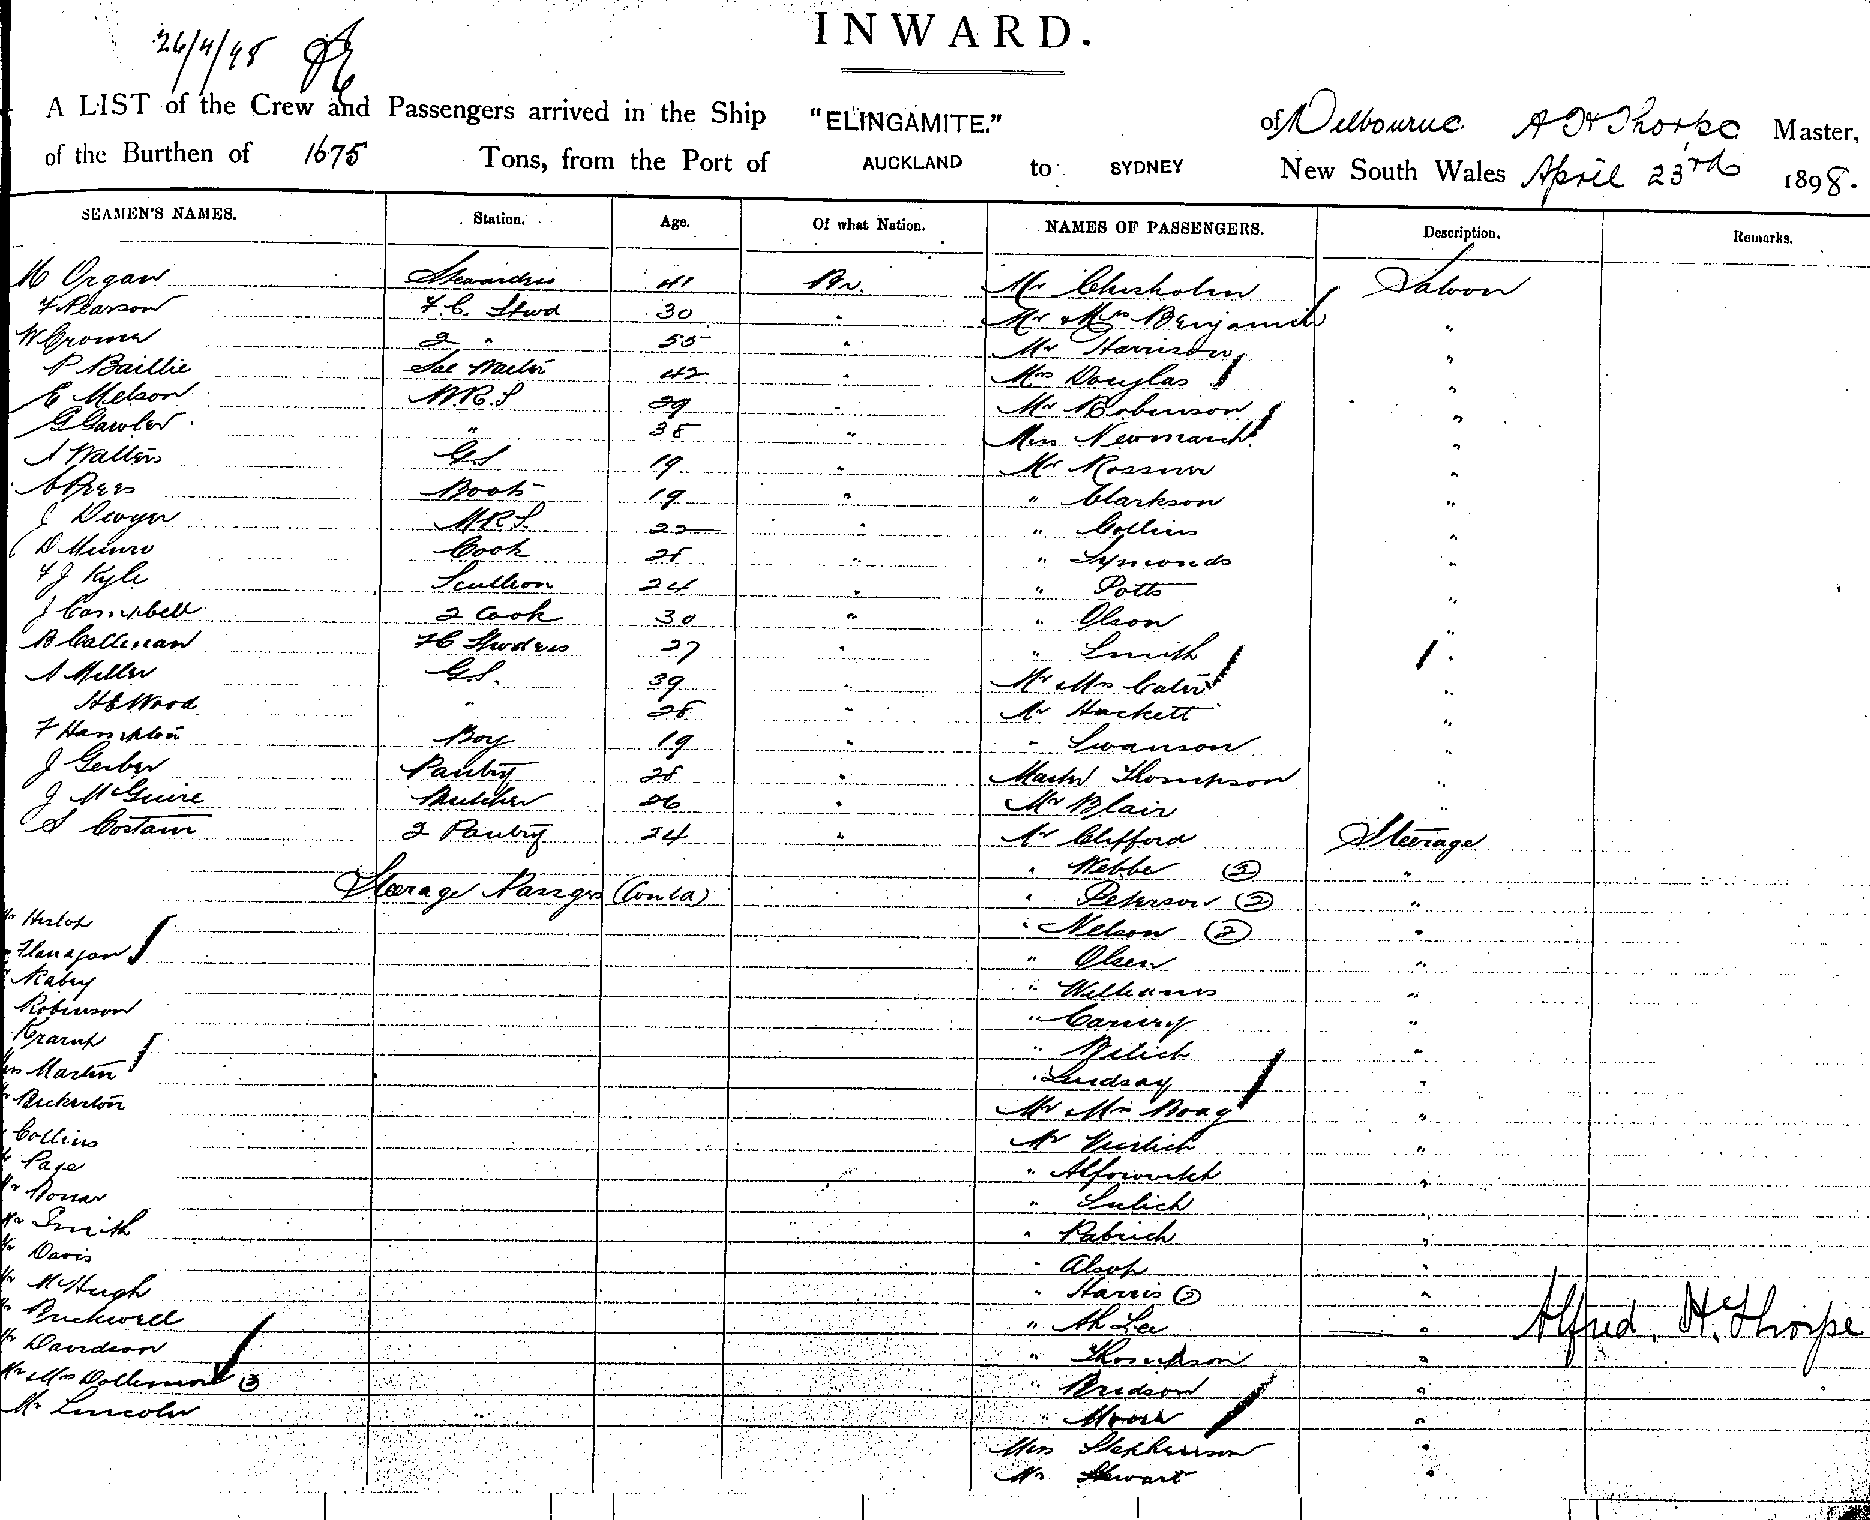 INWARD.
26/4/98
A LIST of the Crew and Passengers arrived in the Ship "ELINGAMITE." of Melbourne A H Thorpe Master,
of the Burthen of 1675 Tons, from the Port of AUCKLAND to SYDNEY New South Wales April 23rd 1898.
SEAMEN'S NAMES. Station. Age. Of what Nation. NAMES OF PASSENGERS. Description. Remarks.
M Organ Stewardess 41 Br. Mr Chisholm Saloon
F Pearson F.C. Stwd 30 " Mr & Mrs Benjamin "
W Crome 2 " 55 " Mr Harrison "
P Baillie Sal Waiter 42 " Mrs Douglas "
E Melson B.R.S 29 " Mr Robinson "
G Gawler " 38 " Miss Newmarch "
A Walters G.S 19 " Mr "
Boots 19 " " Clarkson "
J Dwyer M.R.S. 22 " " Collins "
D Munro Cook 28 " " Symonds "
F J Kyle Scullion 24 " " Potts "
J Campbell 2 Cook 30 " " Olson "
B Callinan FC Stwdess 27 " " Smith "
A Miller G.S. 39 " Mr Mrs Cater "
H E Wood " 28 " Mr Hackett "
F Hampton Boy 19 " " Swanson "
J Gerber Pantry 28 " Master Thompson "
J McGuire Butcher 26 " Mr Blair "
S Costain 2 Pantry 24 " Mr Clifford Steerage
" Webbe (2) "
Steerage Passgrs (Contd) " Peterson (2) "
Mr Heslop " Nelson (2) "
Flanagan " Olsen "
Mabey " Williams "
Robinson " "
Krarup " Bilich "
Mrs Martin " Lindsay "
Bickerton Mr Mrs Boag "
Collins Mr "
Page " "
Mr Bonar " Lulich "
Mr Smith " Pabrich "
Mr Davis " Alsop "
Mr McHugh " Harris (2) "
Mr Buckwell " Ah Lee " Alfred. H. Thorpe
Mr Davidson " Thompson "
Mr Mrs Dollimore (3) " Bridson "
Mr Lincoln " Moore "
Miss Stephenson "
Mr Stewart "